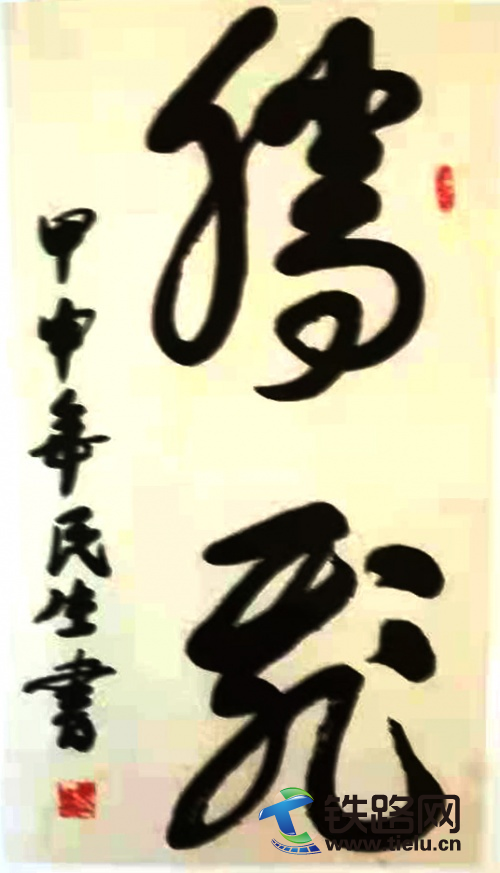 腾飛
甲申年民生書
铁路网
www.tielu.cn